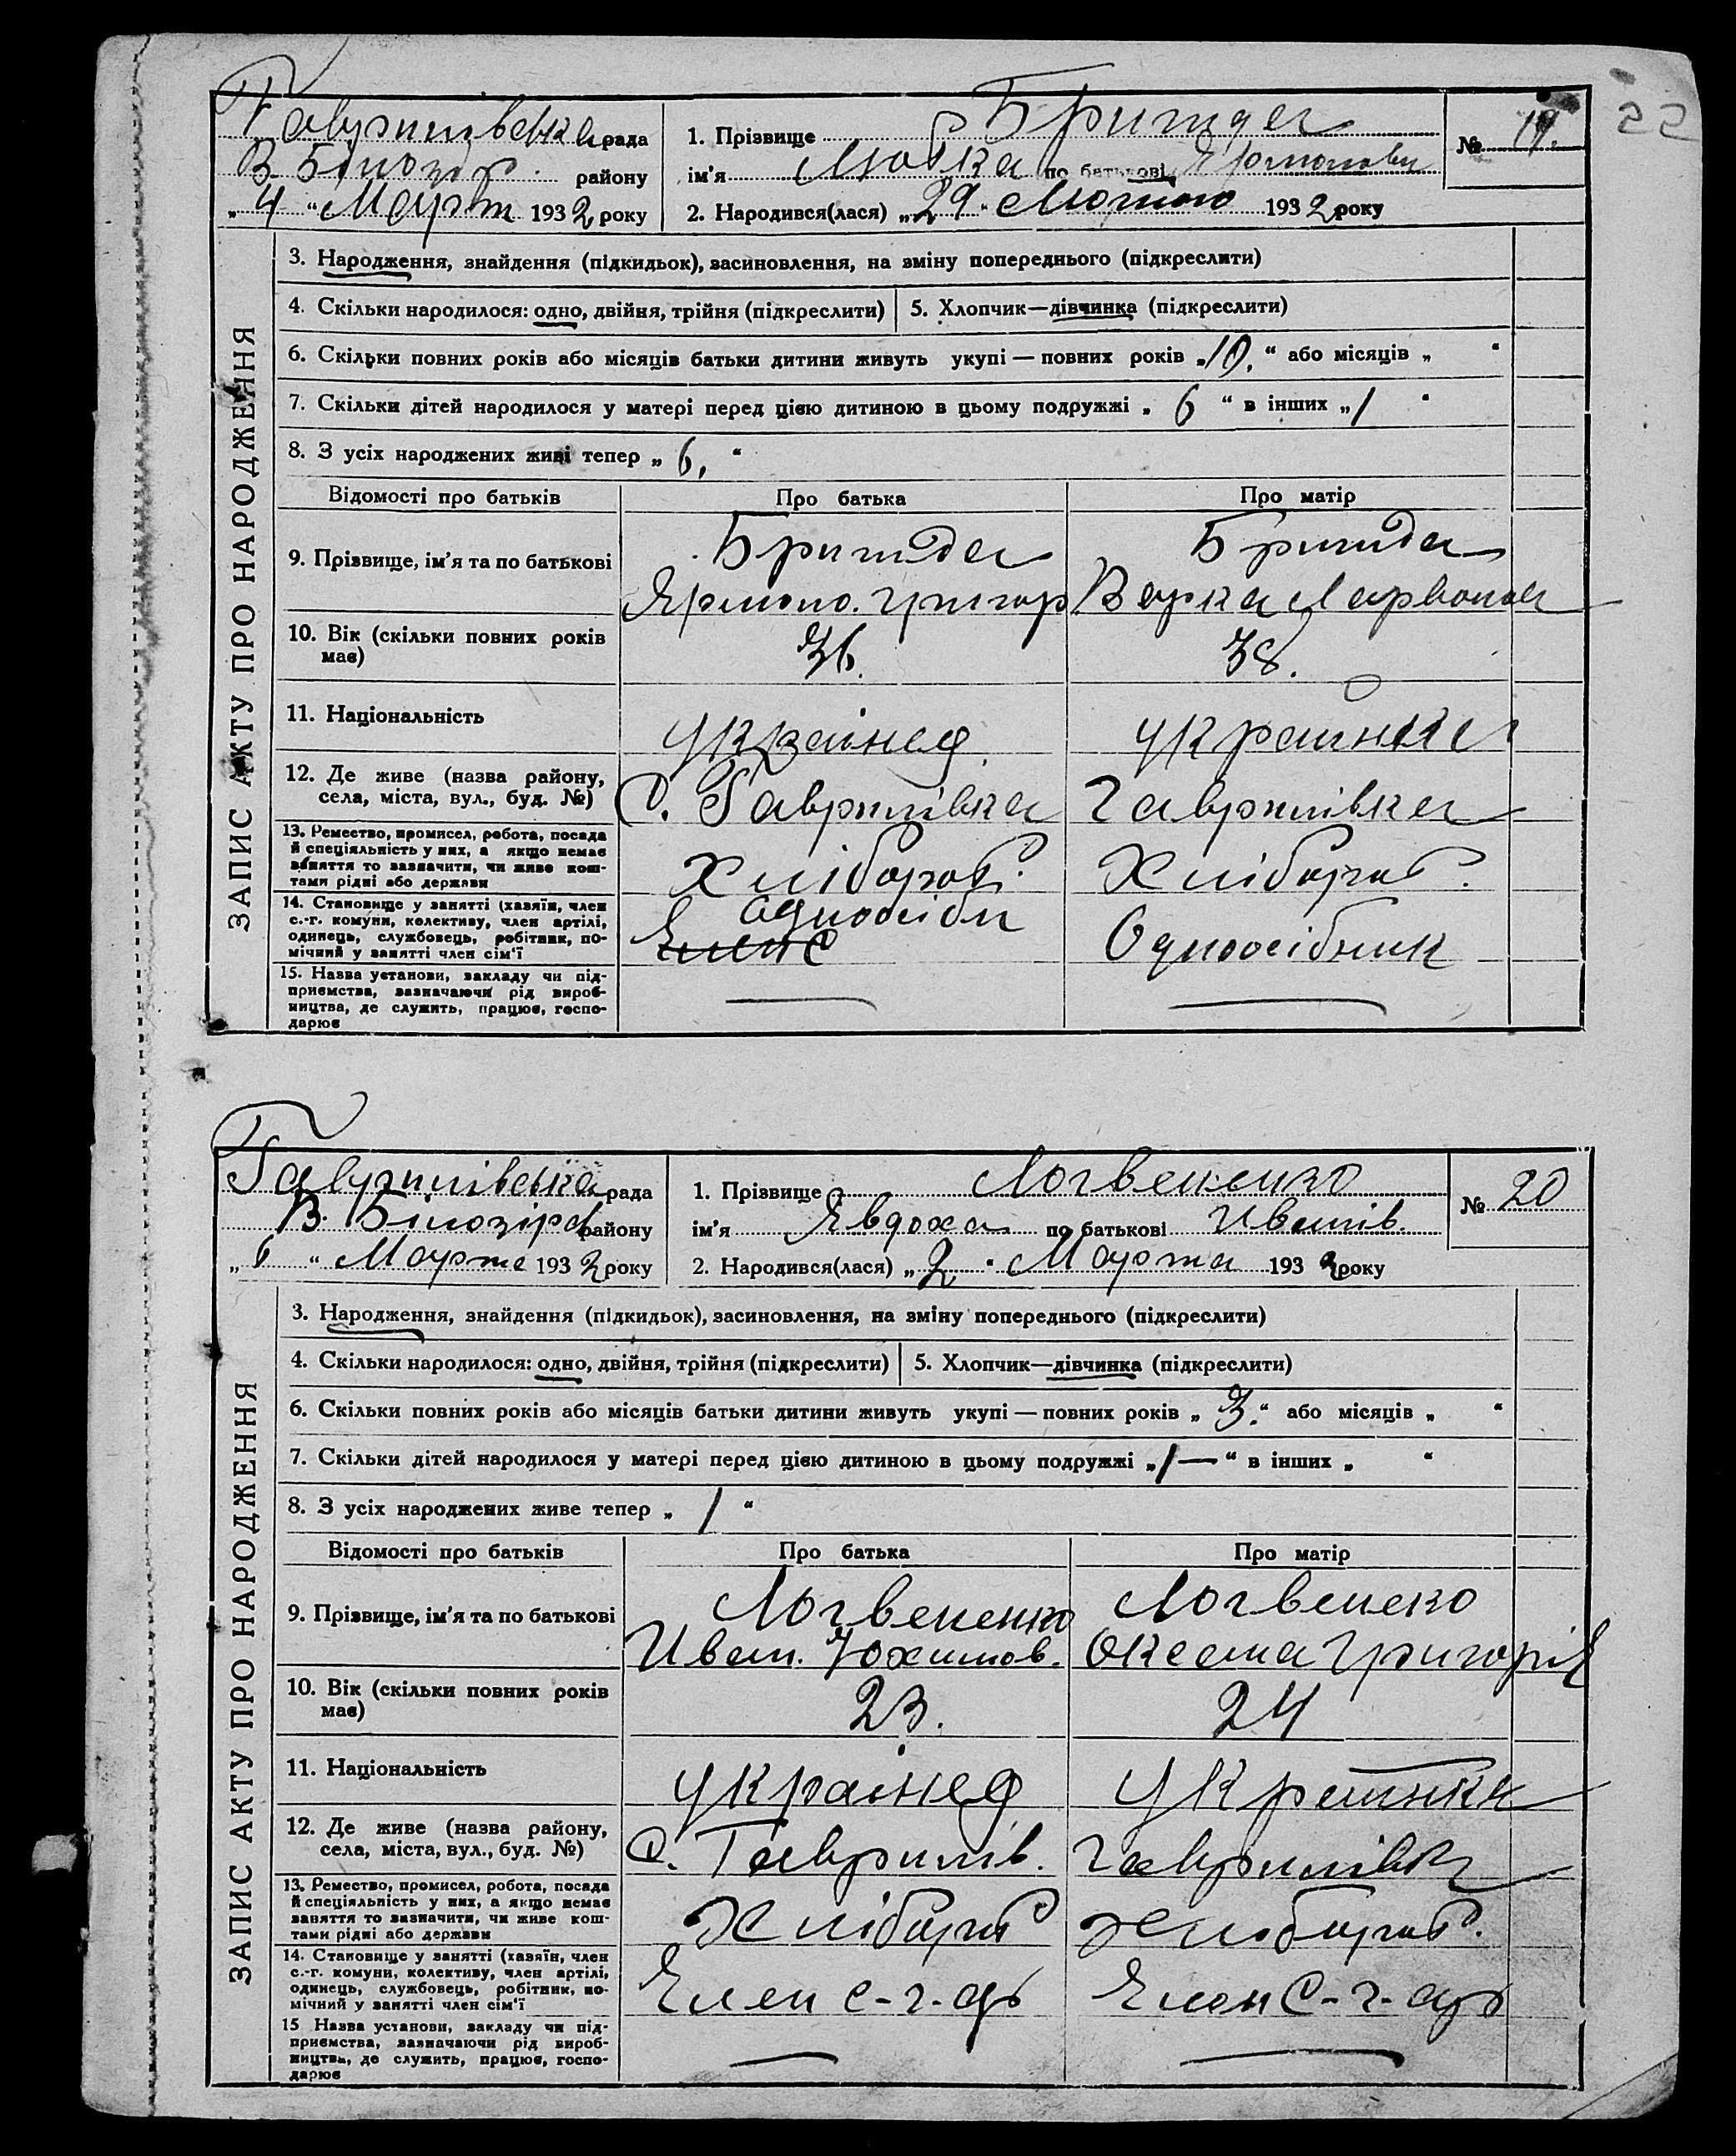 22
Гаврилівська рада
В. Білозір. району
„ 4 “ Март 1932 року
1. Прізвище Бригида
ім'я Любка по батькові
2. Народився(лася) „ 29 “ Лютого 1932 року
№ 19.
ЗАПИС АКТУ ПРО НАРОДЖЕННЯ
3. Народження, знайдення (підкидьок), засиновлення, на зміну попереднього (підкреслити)
4. Скільки народилося: одно, двійня, трійня (підкреслити) 5. Хлопчик—дівчинка (підкреслити)
6. Скільки повних років або місяців батьки дитини живуть укупі — повних років „ 10. “ або місяців „ “
7. Скільки дітей народилося у матері перед цією дитиною в цьому подружжі „ 6 “ в інших „ 1 “
8. З усіх народжених живі тепер „ 6. “
Відомості про батьків Про батька Про матір
9. Прізвище, ім'я та по батькові
Бригида Бригида
Ярмоло. Григор. Варка Ларвонов
10. Вік (скільки повних років має) 36. 38.
11. Національність українец українка
12. Де живе (назва району, села, міста, вул., буд. №) С. Гаврилівка Гаврилівка
13. Ремество, промисел, робота, посада й спеціяльність у них, а якщо немає заняття то зазначити, чи живе коштами рідні або держави Хлібороб. Хлібороб.
14. Становище у занятті (хазяїн, член с.-г. комуни, колективу, член артілі, одинець, службовець, робітник, помічний у занятті член сім'ї Одноосібн Одноосібник
15. Назва установи, закладу чи підприємства, зазначаючи рід виробництва, де служить, працює, господарює
Гаврилівська рада
В. Білозірс району
„ 6 “ Марта 1932 року
1. Прізвище Логвененко
ім'я Явдоха по батькові Иванів.
2. Народився(лася) „ 2 “ Марта 1932 року
№ 20
ЗАПИС АКТУ ПРО НАРОДЖЕННЯ
3. Народження, знайдення (підкидьок), засиновлення, на зміну попереднього (підкреслити)
4. Скільки народилося: одно, двійня, трійня (підкреслити) 5. Хлопчик—дівчинка (підкреслити)
6. Скільки повних років або місяців батьки дитини живуть укупі — повних років „ 3. “ або місяців „ “
7. Скільки дітей народилося у матері перед цією дитиною в цьому подружжі „ 1 — “ в інших „ “
8. З усіх народжених живе тепер „ 1 “
Відомості про батьків Про батька Про матір
9. Прізвище, ім'я та по батькові
Логвененко Логвенеко
Иван. Юхимов. Оксана Григорів
10. Вік (скільки повних років має) 23. 24
11. Національність українец українка
12. Де живе (назва району, села, міста, вул., буд. №) С. Гаврилів. Гаврилівка
13. Ремество, промисел, робота, посада й спеціяльність у них, а якщо немає заняття то зазначити, чи живе коштами рідні або держави Хлібороб Хлібороб.
14. Становище у занятті (хазяїн, член с.-г. комуни, колективу, член артілі, одинець, службовець, робітник, помічний у занятті член сім'ї Член с-г-ар Член С-г-ар
15 Назва установи, закладу чи підприємства, зазначаючи рід виробництва, де служить, працює, господарює